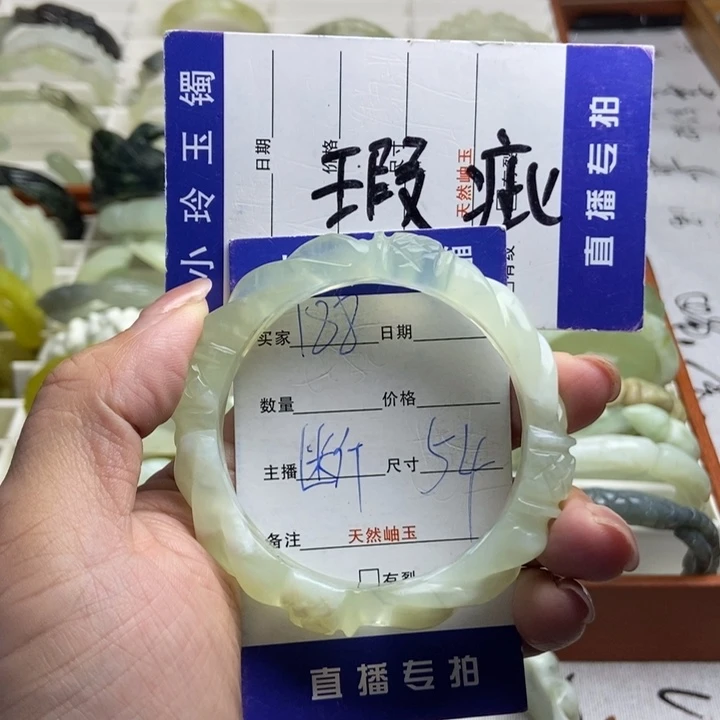 小玲玉镯
日期
价格
尺寸
天然岫玉
瑕疵
直播专拍
买家 188 日期
数量 价格
主播 尺寸 54
备注 天然岫玉
有裂
直播专拍